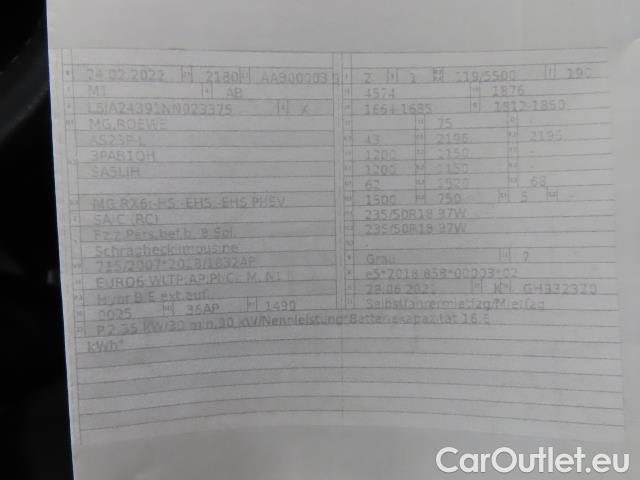 24.02.2022 2180 AAB00003
M1 AB
LSJA24391NN023375 X
MG,ROEWE
AS23P-L
3PAB1QH
SA5LIH
MG RX6;-HS;-EHS,-EHS PHEV
SAIC (RC)
Fz.z.Pers.bef.b. 8 Spl.
Schräghecklimousine
715/2007*2018/1832AP
EURO6 WLTP;AP,PI/CI, M, N1
Hybr.B/E ext.aufl.
0025 36AP 1490
2 1 119/5500 190
4574 1876
1664-1685 1812-1850
75 -
43 2196 2196
1200 1150 -
1200 1150 -
62 1520 68
1500 750 5 -
235/50R18 97W
235/50R18 97W
Grau 7
e5*2018/858*00003*02
28.06.2021 K GH332320
Selbstfahrermietfzg/Mietfzg
P.2.35 KW/30 min,90 kW/Nennleistung*Batteriekapazität 16,6
kWh*
CarOutlet.eu